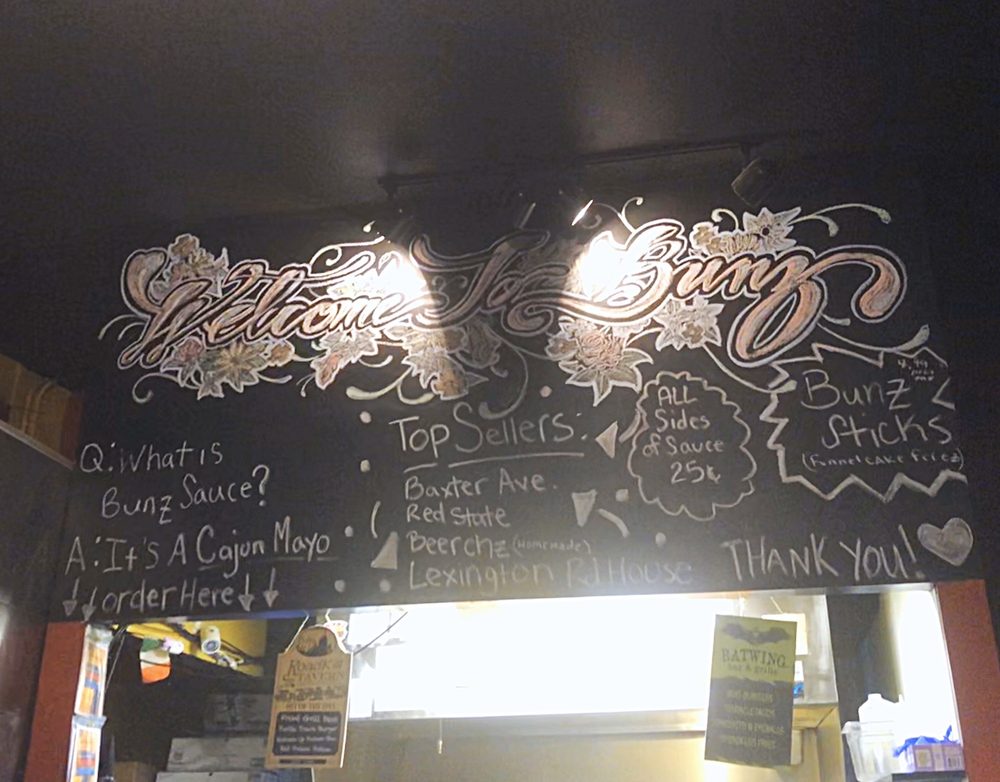 Welcome To Bunz
Q: What is
Bunz Sauce?
A: It's A Cajun Mayo
order Here
Top Sellers:
Baxter Ave.
Red State
Beerchz (Homemade)
Lexington Rd House
ALL
Sides
of Sauce
25¢
Bunz
Sticks
(Funnel cake Friez)
THANK YOU!
TAVERN
BATWING
bar & grille